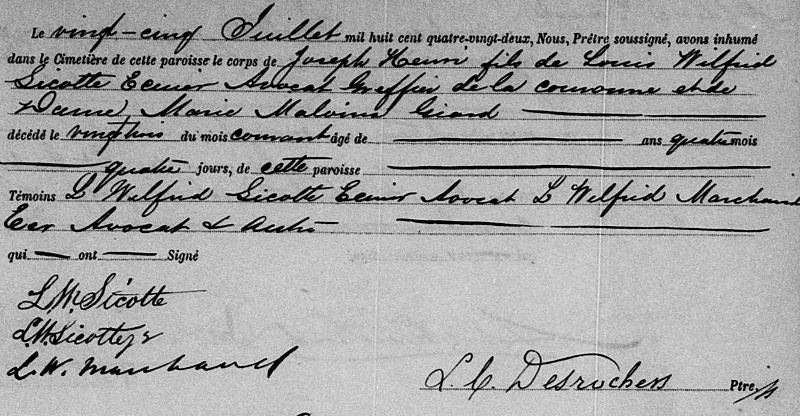 Le vingt-cinq Juillet mil huit cent quatre-vingt-deux, Nous, Prêtre soussigné, avons inhumé
dans le Cimetière de cette paroisse le corps de Joseph Henri fils de Louis Wilfrid
Sicotte Ecuier Avocat Greffier de la couronne et de
Dame Marie Malvina Giard
décédé le vingt trois du mois courant âgé de ans quatre mois
quatre jours, de cette paroisse
Témoins L Wilfrid Sicotte Ecuier Avocat L Wilfrid Marchand
Ecr Avocat & autre
qui ont Signé
L. W. Sicotte
L. W. Sicotte jr
L. W. Marchand
L. C. Desrochers Ptre